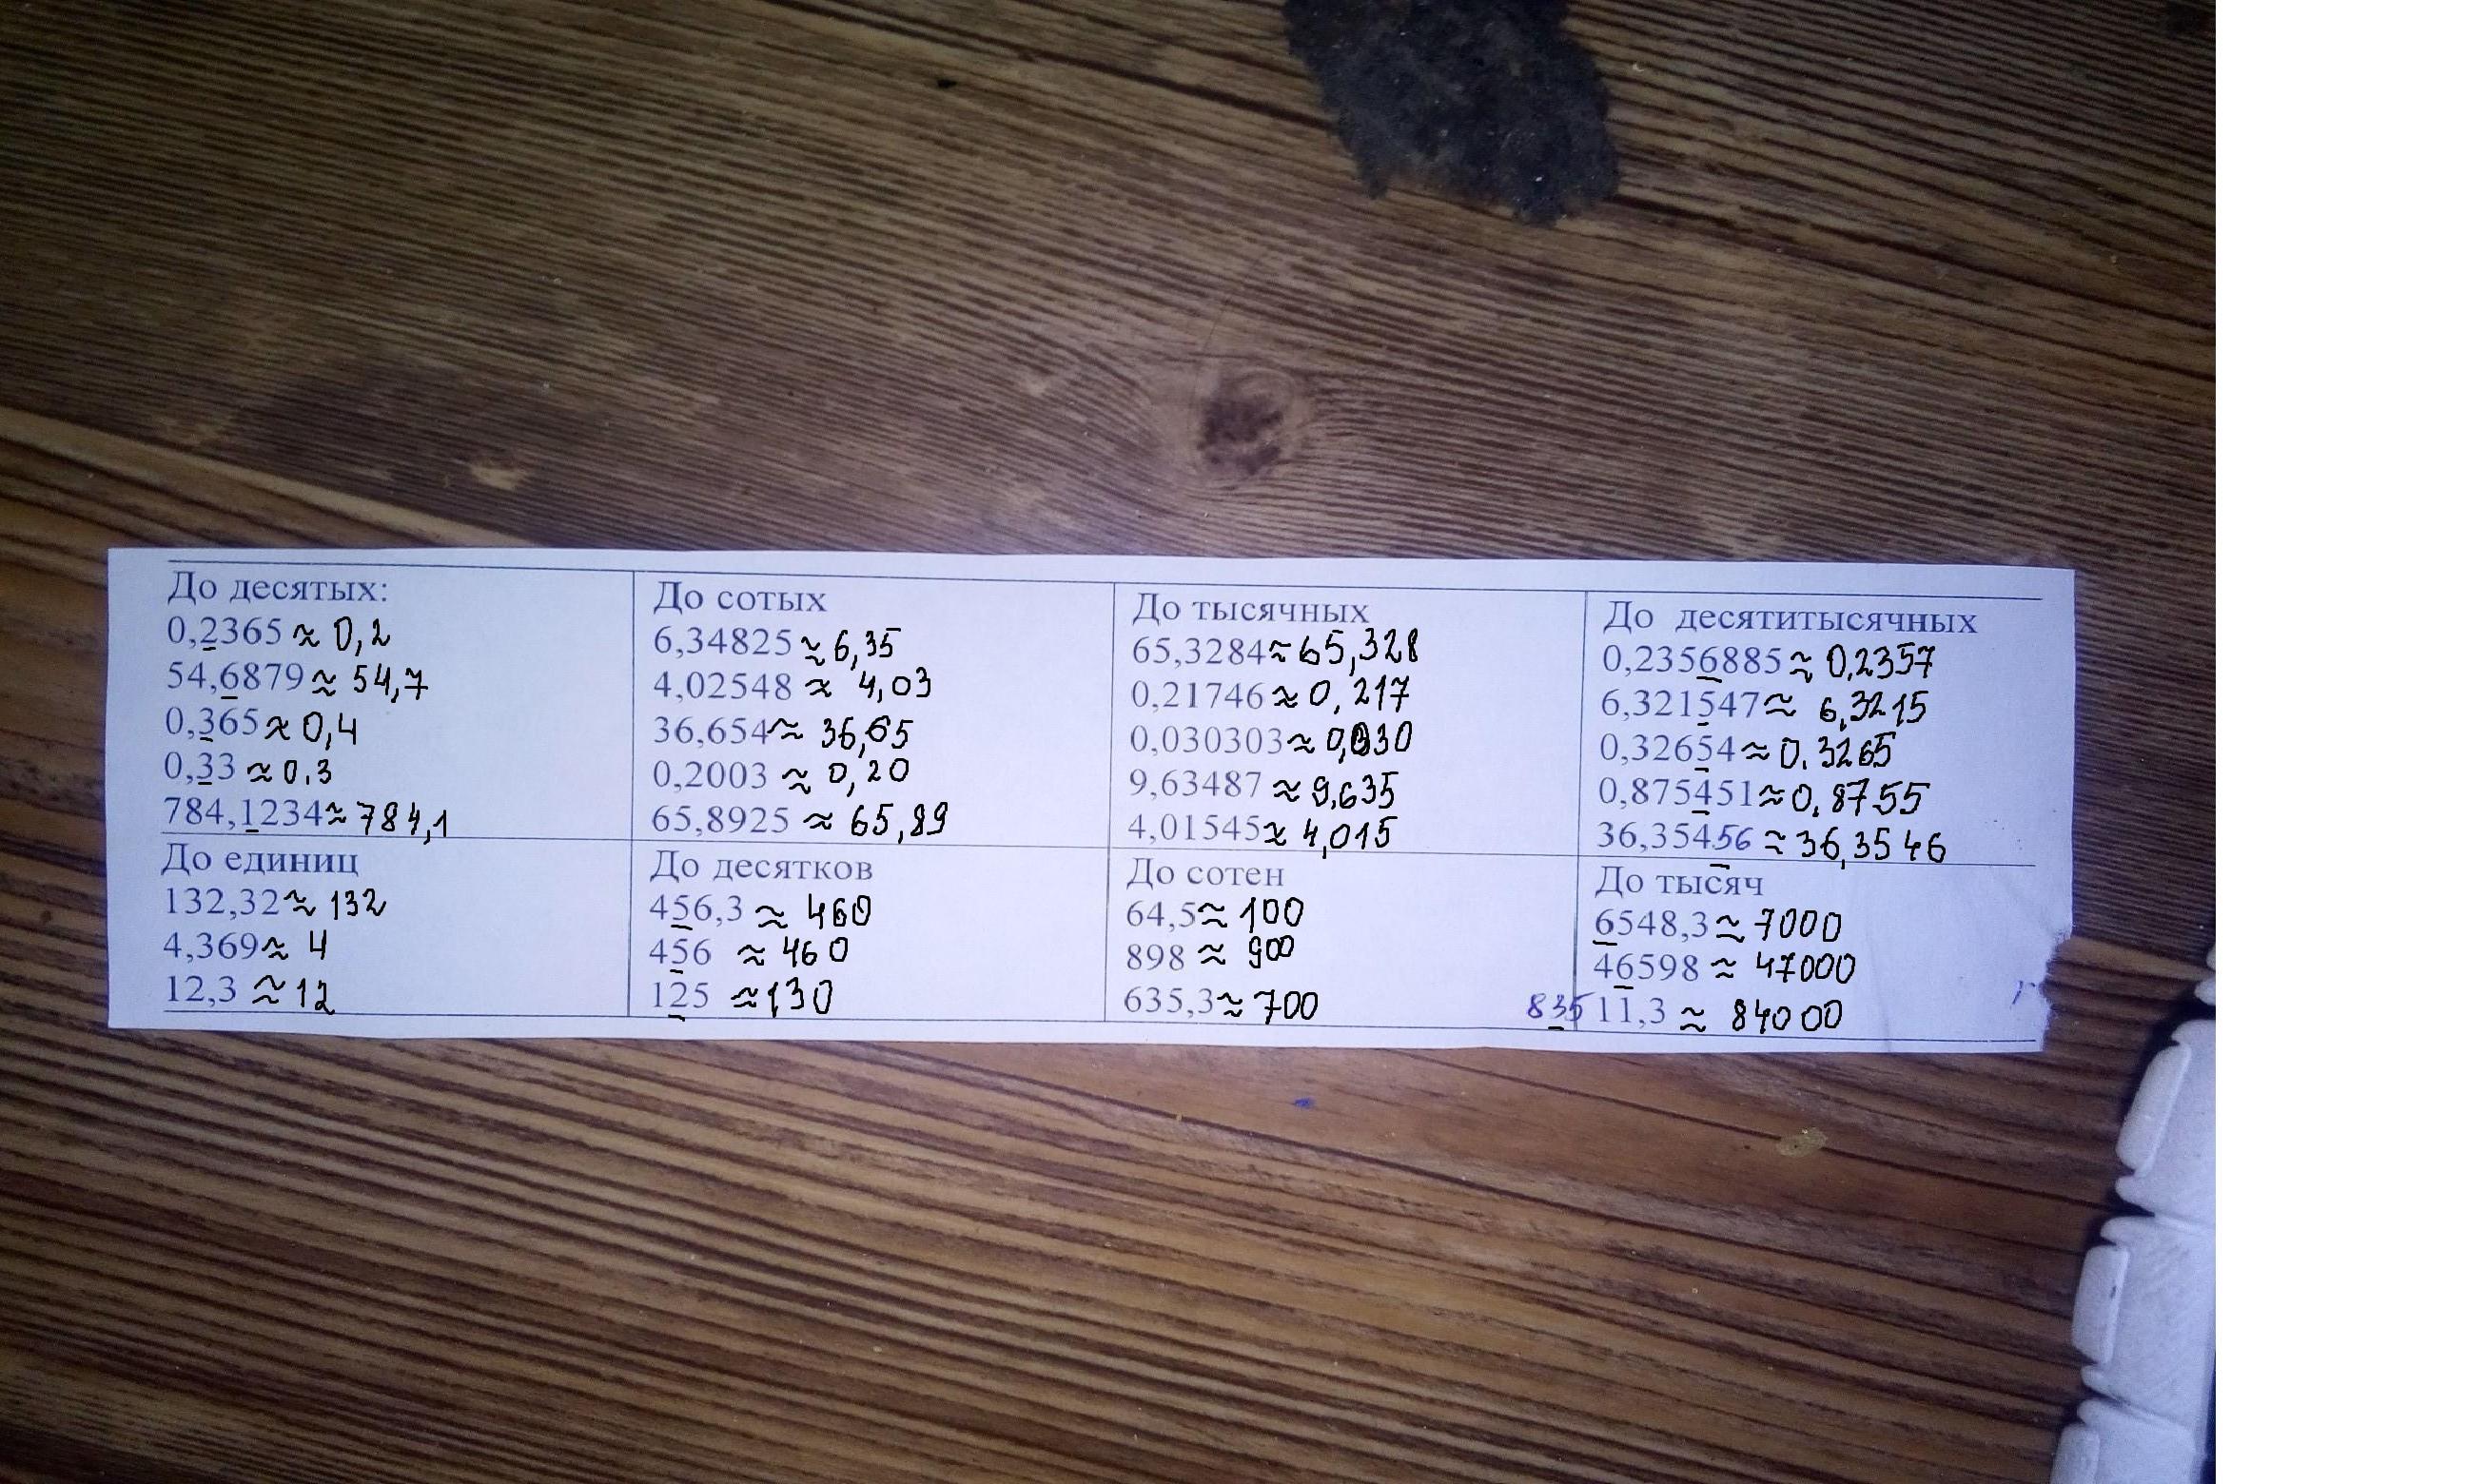 До десятых:
0,2365 ≈ 0,2
54,6879 ≈ 54,7
0,365 ≈ 0,4
0,33 ≈ 0.3
784,1234 ≈ 784,1
До сотых
6,34825 ≈ 6,35
4,02548 ≈ 4,03
36,654 ≈ 36,65
0,2003 ≈ 0,20
65,8925 ≈ 65,89
До тысячных
65,3284 ≈ 65,328
0,21746 ≈ 0,217
0,030303 ≈ 0,030
9,63487 ≈ 9,635
4,01545 ≈ 4,015
До десятитысячных
0,2356885 ≈ 0,2357
6,321547 ≈ 6,3215
0,32654 ≈ 0.3265
0,875451 ≈ 0,8755
36,35456 ≈ 36,3546
До единиц
132,32 ≈ 132
4,369 ≈ 4
12,3 ≈ 12
До десятков
456,3 ≈ 460
456 ≈ 460
125 ≈ 130
До сотен
64,5 ≈ 100
898 ≈ 900
635,3 ≈ 700
До тысяч
6548,3 ≈ 7000
46598 ≈ 47000
83511,3 ≈ 84000